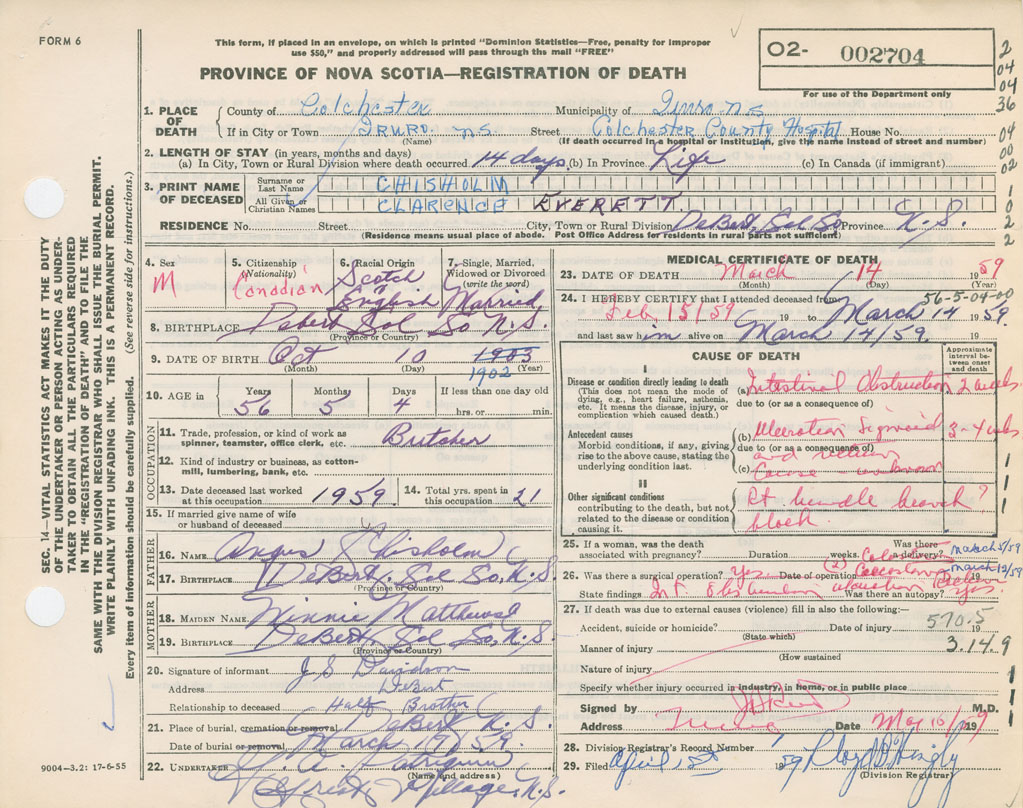 FORM 6
This form, if placed in an envelope, on which is printed "Dominion Statistics—Free, penalty for improper
use $50," and properly addressed will pass through the mail "FREE"
PROVINCE OF NOVA SCOTIA—REGISTRATION OF DEATH
O2- 002704
For use of the Department only
2
04
04
36
04
00
02
1
0
2
2
1. PLACE OF DEATH
County of Colchester Municipality of Truro N S
If in City or Town TRURO. N.S. Street Colchester County Hospital House No.
(Name) (If death occurred in a hospital or institution, give the name instead of street and number)
2. LENGTH OF STAY (in years, months and days)
(a) In City, Town or Rural Division where death occurred 14 days (b) In Province Life (c) In Canada (if immigrant)
3. PRINT NAME OF DECEASED
Surname or Last Name CHISHOLM
All Given or Christian Names CLARENCE EVERETT
RESIDENCE No. Street City, Town or Rural Division DeBert, Col. Co Province N.S.
(Residence means usual place of abode. Post Office Address for residents in rural parts not sufficient)
4. Sex M
5. Citizenship (Nationality) Canadian
6. Racial Origin Scotch English
7. Single, Married, Widowed or Divorced (write the word) Married
8. BIRTHPLACE Debert Col Co N.S.
(Province or Country)
9. DATE OF BIRTH Oct 10 1903 1902
(Month) (Day) (Year)
10. AGE in Years 56 Months 5 Days 4 If less than one day old hrs. or min.
OCCUPATION
11. Trade, profession, or kind of work as spinner, teamster, office clerk, etc. Butcher
12. Kind of industry or business, as cotton-mill, lumbering, bank, etc.
13. Date deceased last worked at this occupation 1959 14. Total yrs. spent in this occupation 21
15. If married give name of wife or husband of deceased
FATHER
16. NAME Angus Chisholm
17. BIRTHPLACE DeBert. Col Co, N.S.
(Province or Country)
MOTHER
18. MAIDEN NAME Minnie
19. BIRTHPLACE DeBert, Col Co, N.S.
(Province or Country)
20. Signature of informant J S Davidson
Address DeBert
Relationship to deceased Half Brother
21. Place of burial, cremation or removal DeBert N.S.
Date of burial or removal March 17/59.
22. UNDERTAKER
(Name and address)
Village, N.S.
9004-3.2: 17-6-55
MEDICAL CERTIFICATE OF DEATH
23. DATE OF DEATH March 14 1959
(Month) (Day) (Year)
56-5-04-00
24. I HEREBY CERTIFY that I attended deceased from
Feb 15/59 19 to March 14 1959.
and last saw him alive on March 14/59. 19
CAUSE OF DEATH
Approximate interval between onset and death
I
Disease or condition directly leading to death
(This does not mean the mode of dying, e.g., heart failure, asthenia, etc. It means the disease, injury, or complication which caused death.)
(a) Intestinal Obstruction 2 weeks
due to (or as a consequence of)
Antecedent causes
Morbid conditions, if any, giving rise to the above cause, stating the underlying condition last.
(b) Ulceration Sigmoid
due to (or as a consequence of)
and
(c) Cause unknown
II
Other significant conditions
contributing to the death, but not related to the disease or condition causing it.
Rt bundle branch block. ?
25. If a woman, was the death associated with pregnancy? Duration weeks. Was there a delivery?
March 5/59
March 12/59
26. Was there a surgical operation? yes Date of operation 19
State findings Int Obstruction Was there an autopsy? yes.
27. If death was due to external causes (violence) fill in also the following:—
570.5
Accident, suicide or homicide? Date of injury 19
(State which)
Manner of injury 3.14.9
(How sustained
Nature of injury
Specify whether injury occurred in industry, in home, or in public place
Signed by M.D.
Address Truro Date May 16/59 19
28. Division Registrar's Record Number
29. Filed April 1st 1959 Lloyd
(Division Registrar)
SEC. 14—VITAL STATISTICS ACT MAKES IT THE DUTY
OF THE UNDERTAKER OR PERSON ACTING AS UNDER-
TAKER TO OBTAIN ALL THE PARTICULARS REQUIRED
IN THE "REGISTRATION OF DEATH" AND TO FILE THE
SAME WITH THE DIVISION REGISTRAR WHO SHALL ISSUE THE BURIAL PERMIT.
WRITE PLAINLY WITH UNFADING INK. THIS IS A PERMANENT RECORD.
Every item of information should be carefully supplied. (See reverse side for instructions.)